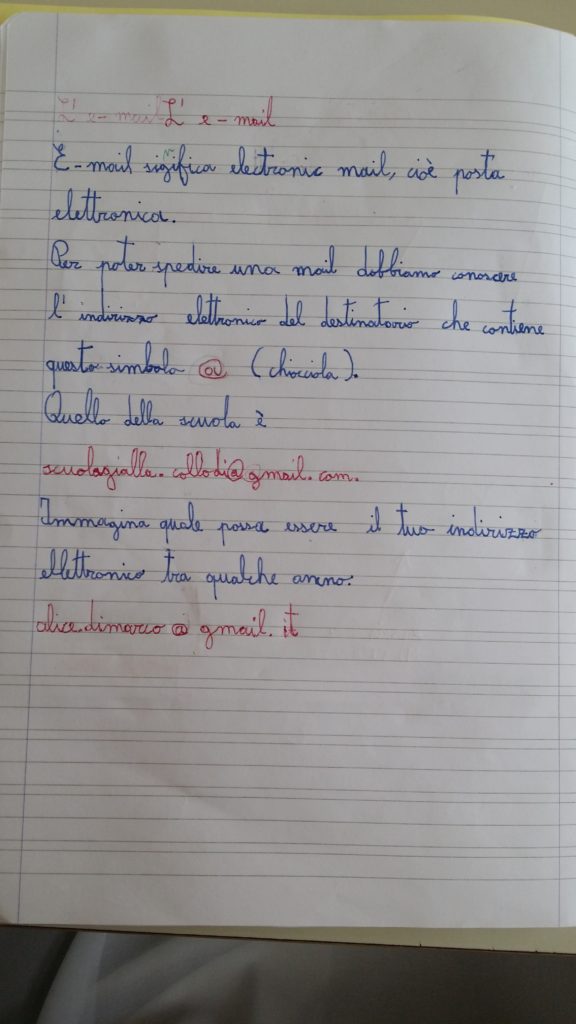 L'e-mail L' e-mail
E-mail significa electronic mail, cioè posta
elettronica.
Per poter spedire una mail dobbiamo conoscere
l'indirizzo elettronico del destinatario che contiene
questo simbolo @ (chiocciola).
Quello della scuola è
scuolagialla.collodi@gmail.com.
Immagina quale possa essere il tuo indirizzo
ellettronico tra qualche anno:
alice.dimarco @ gmail. it